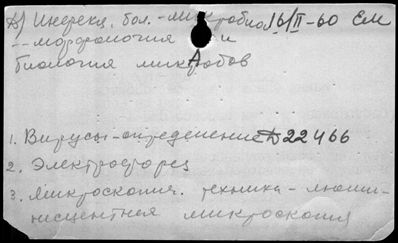 А) Инфекц. бол. - микробиол 16/II-60 Ем
-- морфология и
биология микробов
1. Вирусы-определение Д22466
2. Электрофорез
3. Микроскопич. техника - люми-
нисцентная микроскопия